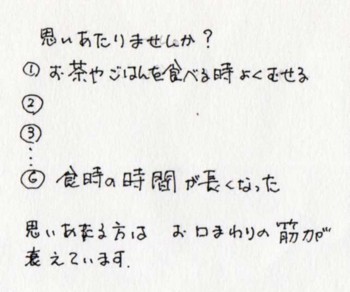 思いあたりませんか?
① お茶やごはんを食べる時よくむせる
②
③
⋮
⑥ 食時の時間が長くなった
思いあたる方は お口まわりの筋力が
衰えています.